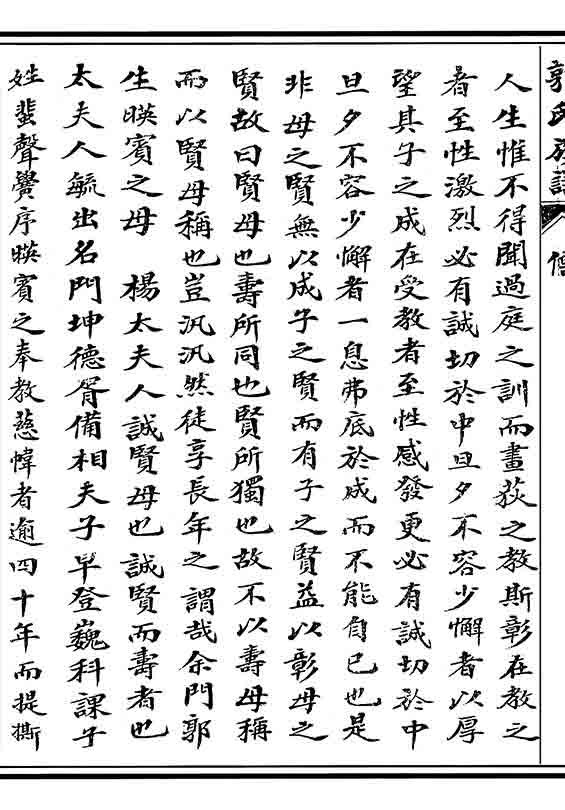 郭氏族譜 傳
人生惟不得聞過庭之訓而畫荻之教斯彰在教之
者至性激烈必有誠切於中旦夕不容少懈者以厚
望其子之成在受教者至性感發更必有誠切於中
旦夕不容少懈者一息弗底於成而不能自已也是
非母之賢無以成子之賢而有子之賢益以彰母之
賢故曰賢母也壽所同也賢所獨也故不以壽母稱
而以賢母稱也豈汎汎然徒享長年之謂哉余門郭
生暎賓之母 楊太夫人誠賢母也誠賢而壽者也
太夫人毓出名門坤德胥備相夫子早登巍科課子
姓蜚聲黌序暎賓之奉教慈幃者逾四十年而提撕